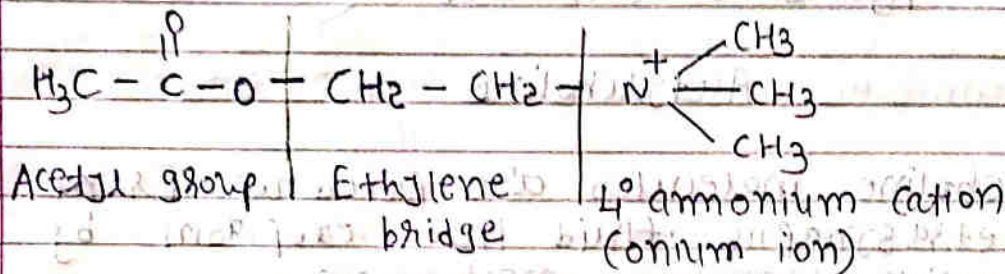 O
H₃C – C – O – CH₂ – CH₂ – N⁺ CH3
CH3
CH3
Acetyl group Ethylene 4° ammonium cation
bridge (onium ion)